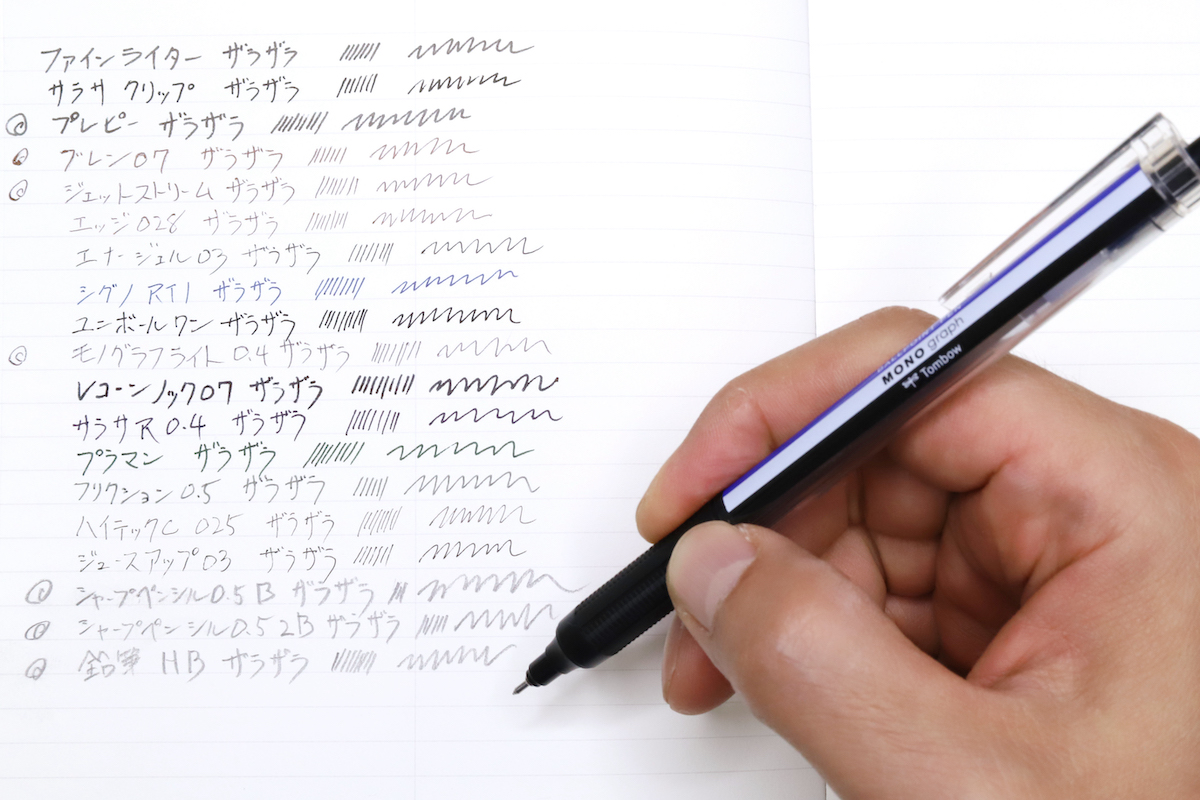 ファインライター ザラザラ
サラサクリップ ザラザラ
プレピー ザラザラ
ブレン07 ザラザラ
ジェットストリーム ザラザラ
エッジ028 ザラザラ
エナージェル03 ザラザラ
シグノRT1 ザラザラ
ユニボールワン ザラザラ
モノグラフライト0.4 ザラザラ
Vコーンノック07 ザラザラ
サラサR0.4 ザラザラ
プラマン ザラザラ
フリクション0.5 ザラザラ
ハイテックC 025 ザラザラ
ジュースアップ03 ザラザラ
シャープペンシル0.5B ザラザラ
シャープペンシル0.52B ザラザラ
鉛筆 HB ザラザラ
MONO graph
Tombow